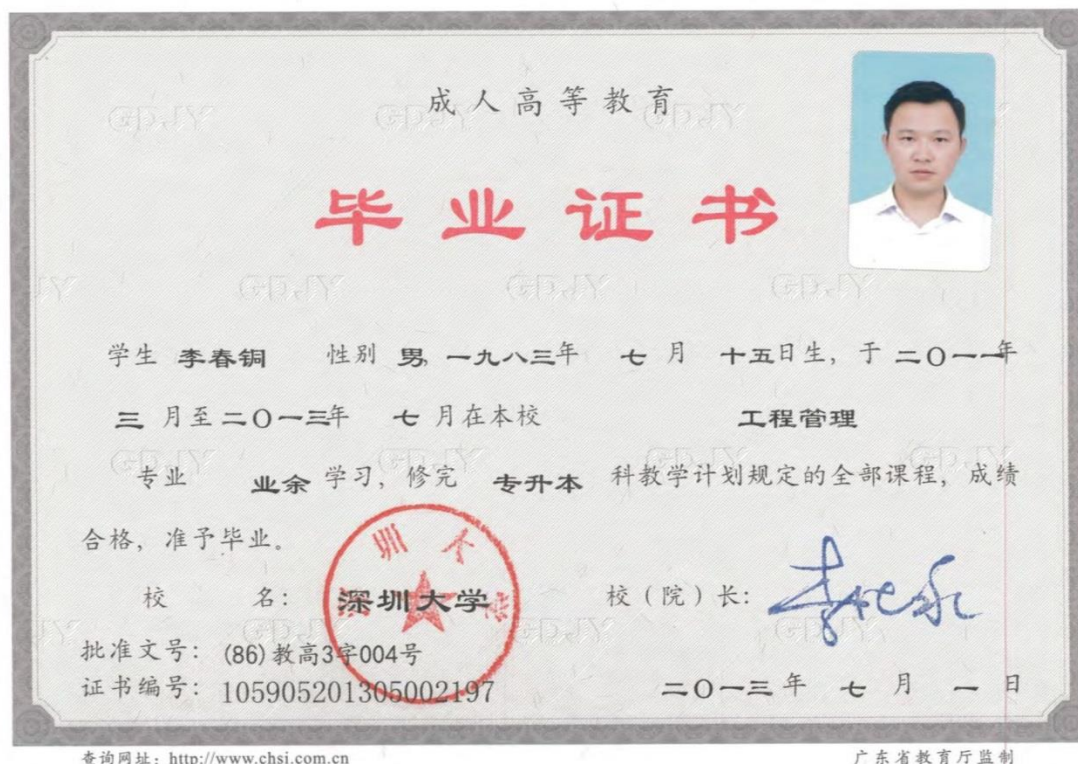 成人高等教育
毕业证书
学生 李春铜 性别 男, 一九八三年 七 月 十五日生, 于 二〇一一年
三 月至二〇一三年 七 月在本校 工程管理
专业 业余 学习, 修完 专升本 科教学计划规定的全部课程, 成绩
合格, 准予毕业。
校 名: 深圳大学 校(院)长:
批准文号: (86)教高3字004号
证书编号: 105905201305002197 二〇一三年 七 月 一 日
查询网址: http://www.chsi.com.cn 广东省教育厅监制
GDJY